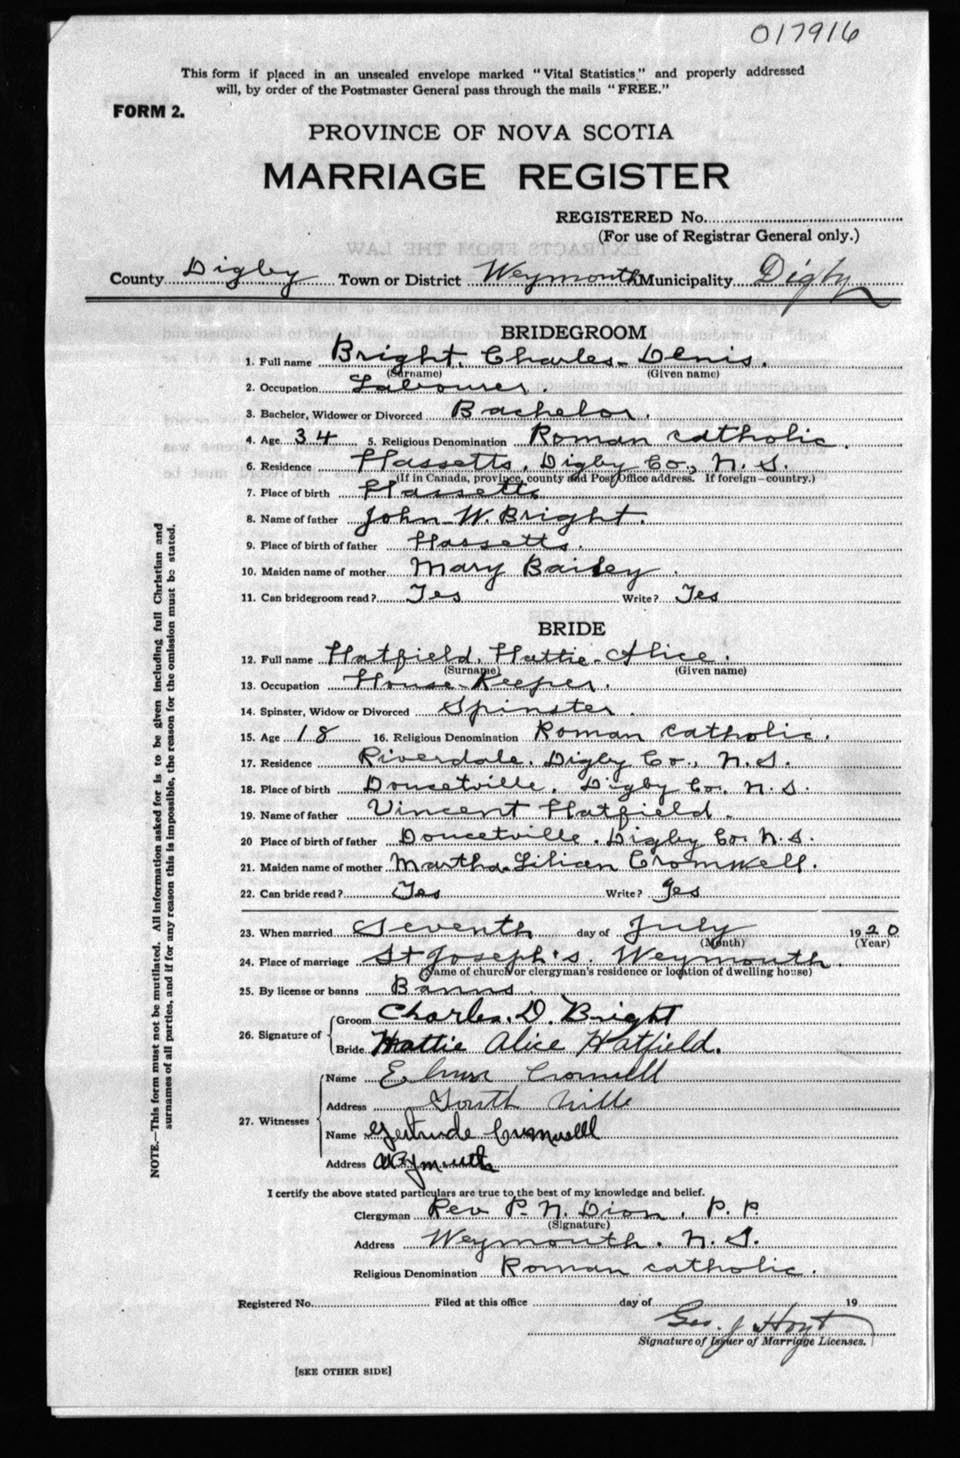 017916
This form if placed in an unsealed envelope marked "Vital Statistics," and properly addressed
will, by order of the Postmaster General pass through the mails "FREE."
FORM 2.
PROVINCE OF NOVA SCOTIA
MARRIAGE REGISTER
REGISTERED No.
(For use of Registrar General only.)
County Digby Town or District Weymouth Municipality Digby
BRIDEGROOM
1. Full name Bright, Charles Denis.
(Surname) (Given name)
2. Occupation Labourer
3. Bachelor, Widower or Divorced Bachelor.
4. Age 34 5. Religious Denomination Roman catholic.
6. Residence Hassetts, Digby Co., N.S.
(If in Canada, province, county and Post Office address. If foreign—country.)
7. Place of birth Hassetts
8. Name of father John W. Bright.
9. Place of birth of father Hassetts.
10. Maiden name of mother Mary Bailey.
11. Can bridegroom read? Yes Write? Yes
BRIDE
12. Full name Hatfield, Hattie Alice.
(Surname) (Given name)
13. Occupation House Keeper.
14. Spinster, Widow or Divorced Spinster.
15. Age 18 16. Religious Denomination Roman catholic.
17. Residence Riverdale, Digby Co., N.S.
18. Place of birth Doucetville, Digby Co. N.S.
19. Name of father Vincent Hatfield.
20 Place of birth of father Doucetville, Digby Co. N.S.
21. Maiden name of mother Martha Lilian Cromwell.
22. Can bride read? Yes Write? Yes
23. When married Seventh day of July 1920
(Month) (Year)
24. Place of marriage St Joseph's. Weymouth.
(Name of church or clergyman's residence or location of dwelling house)
25. By license or banns Banns.
26. Signature of Groom Charles. D. Bright
Bride Hattie Alice Hatfield.
27. Witnesses Name Cromwell
Address South Ville
Name Gertrude Cromwell
Address Weymouth
I certify the above stated particulars are true to the best of my knowledge and belief.
Clergyman Rev P. N. Dion, P. P.
(Signature)
Address Weymouth. N. S.
Religious Denomination Roman catholic.
Registered No. Filed at this office day of 19
Geo. J Hoyt
Signature of Issuer of Marriage Licenses.
[SEE OTHER SIDE]
NOTE.—This form must not be mutilated. All information asked for is to be given including full Christian and
surnames of all parties, and if for any reason this is impossible, the reason for the omission must be stated.